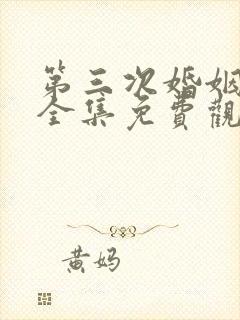 第三次婚姻
全集免費觀
黄妈